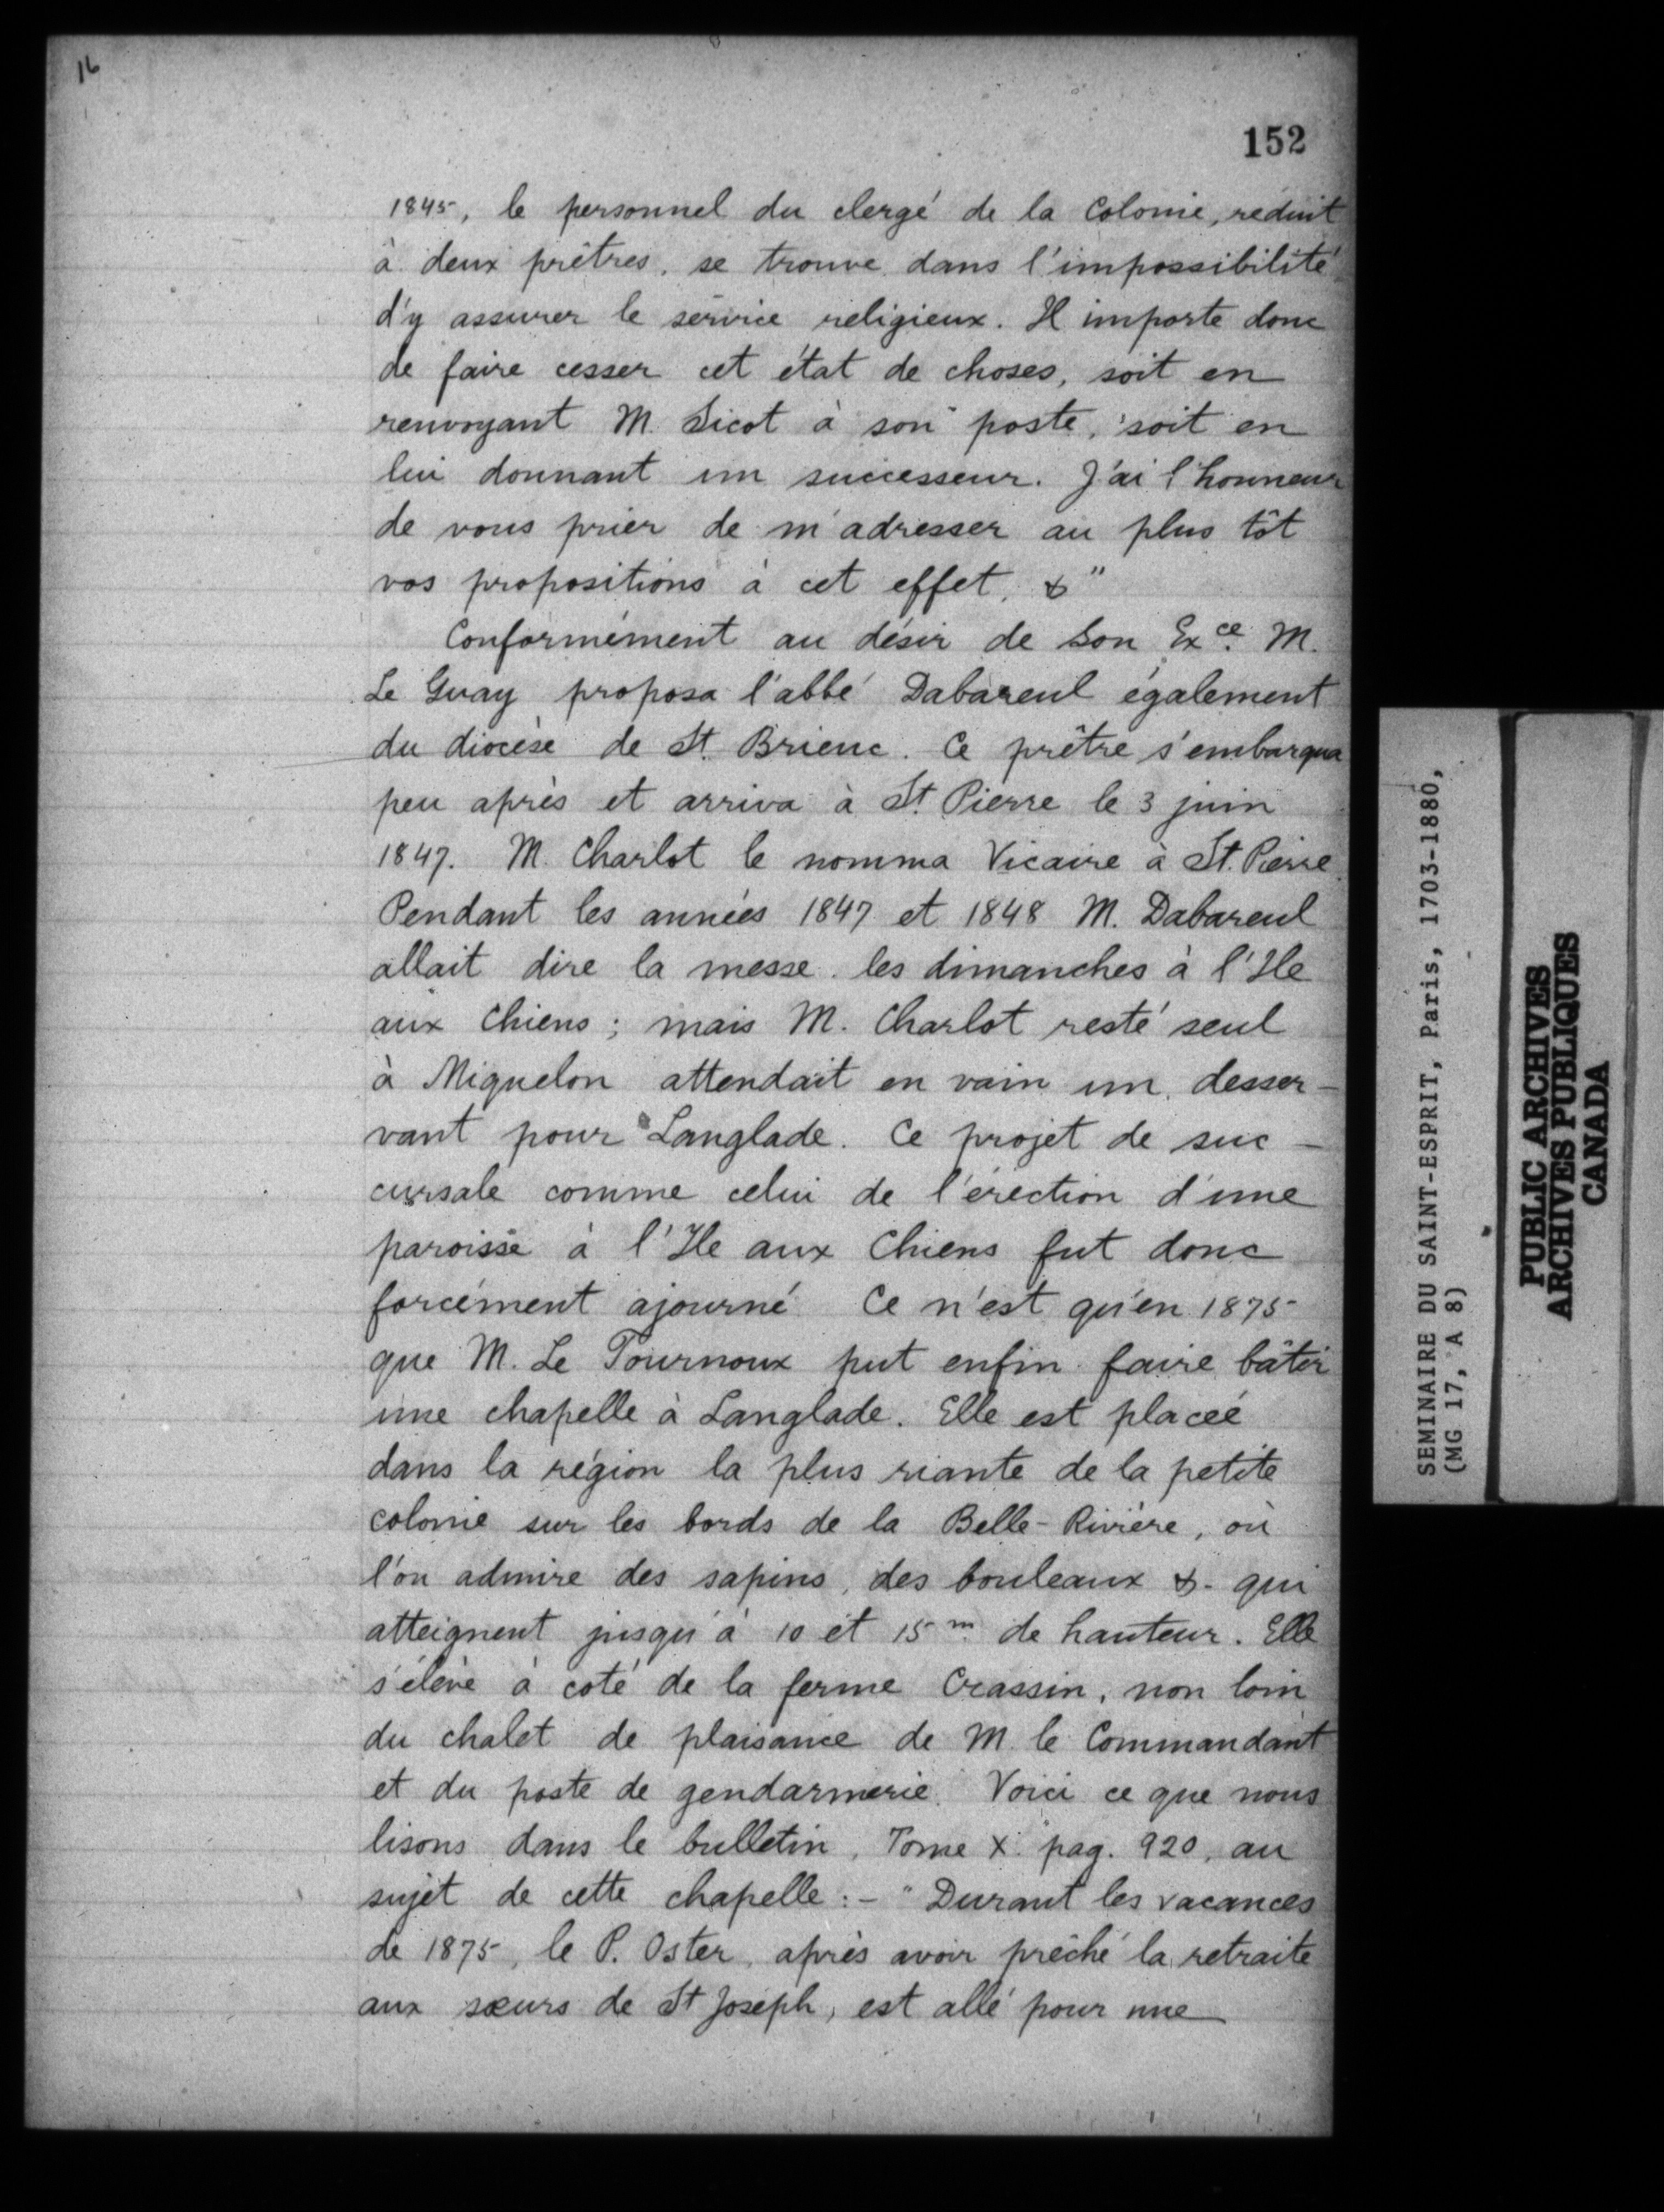 16
152
1845, le personnel du clergé de la Colonie, réduit
à deux prêtres, se trouve dans l'impossibilité
d'y assurer le service religieux. Il importe donc
de faire cesser cet état de choses, soit en
renvoyant M. Sicot à son poste, soit en
lui donnant un successeur. J'ai l'honneur
de vous prier de m'adresser au plus tôt
vos propositions à cet effet, &"
Conformément au désir de Son Exce. M.
Le Guay proposa l'abbé Dabareul également
du diocèse de St. Brieuc. Ce prêtre s'embarqua
peu après et arriva à St. Pierre le 3 juin
1847. M. Charlot le nomma Vicaire à St. Pierre.
Pendant les années 1847 et 1848 M. Dabareul
allait dire la messe les dimanches à l'Ile
aux Chiens ; mais M. Charlot resté seul
à Miquelon attendait en vain un desser-
vant pour Langlade. Ce projet de suc-
cursale comme celui de l'érection d'une
paroisse à l'Ile aux Chiens fut donc
forcément ajourné Ce n'est qu'en 1875
que M. Le Tournoux put enfin faire bâtir
une chapelle à Langlade. Elle est placée
dans la région la plus riante de la petite
colonie sur les bords de la Belle-Rivière, où
l'on admire des sapins, des bouleaux &- qui
atteignent jusqu'à 10 et 15m. de hauteur. Elle
s'élève à coté de la ferme Crassin, non loin
du chalet de plaisance de M. le Commandant
et du poste de gendarmerie. Voici ce que nous
lisons dans le bulletin, Tome X. pag. 920, au
sujet de cette chapelle :- "Durant les vacances
de 1875, le P. Oster, après avoir prêché la retraite
aux sœurs de St Joseph, est allé pour une
SEMINAIRE DU SAINT-ESPRIT, Paris, 1703-1880,
(MG 17, A 8)
PUBLIC ARCHIVES
ARCHIVES PUBLIQUES
CANADA